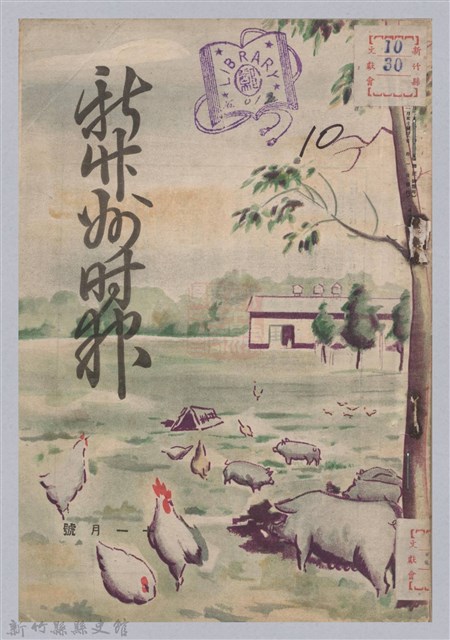 LIBRARY
新竹縣
10
30
文獻會
10
新竹州時報
十一月號
文獻會
新竹縣縣史館